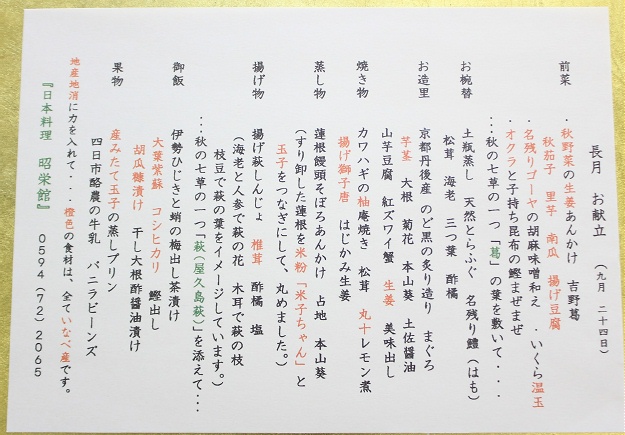 長月 お献立 (九月 二十四日)
前菜
・秋野菜の生姜あんかけ 吉野葛
秋茄子 里芋 南瓜 揚げ豆腐
・名残りゴーヤの胡麻味噌和え ・いくら温玉
・オクラと子持ち昆布の鰹まぜまぜ
・・・秋の七草の一つ「葛」の葉を敷いて・・・
お椀替
土瓶蒸し 天然とらふぐ 名残り鱧(はも)
松茸 海老 三つ葉 酢橘
お造里
京都丹後産 のど黒の炙り造り まぐろ
芋茎 大根 菊花 本山葵 土佐醤油
山芋豆腐 紅ズワイ蟹 生姜 美味出し
焼き物
カワハギの柚庵焼き 松茸 丸十レモン煮
揚げ獅子唐 はじかみ生姜
蒸し物
蓮根饅頭そぼろあんかけ 占地 本山葵
(すり卸した蓮根を米粉「米子ちゃん」と
玉子をつなぎにして、丸めました。)
揚げ物
揚げ萩しんじょ 椎茸 酢橘 塩
(海老と人参で萩の花 木耳で萩の枝
枝豆で萩の葉をイメージしています。)
・・・秋の七草の一つ「萩(屋久島萩)」を添えて・・・
御飯
伊勢ひじきと蛸の梅出し茶漬け
大葉紫蘇 コシヒカリ 鰹出し
胡瓜糠漬け 干し大根酢醤油漬け
果物
産みたて玉子の蒸しプリン
四日市酪農の牛乳 バニラビーンズ
地産地消に力を入れて・・・橙色の食材は、全ていなべ産です。
『日本料理 昭栄館』 0594(72)2065